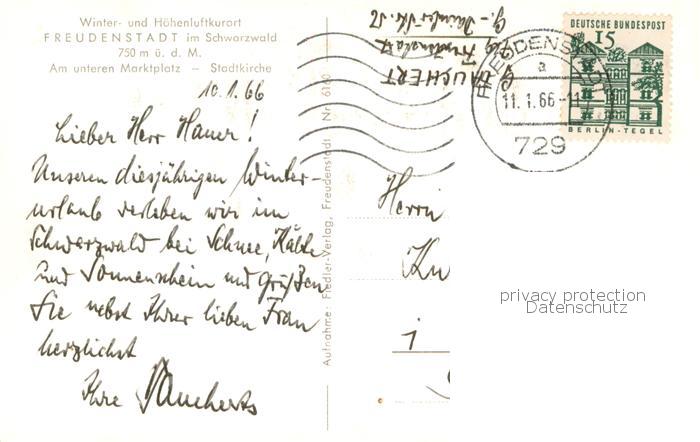 Winter- und Höhenluftkurort
FREUDENSTADT im Schwarzwald
750 m ü. d. M.
Am unteren Marktplatz – Stadtkirche
10.1.66
Lieber Herr Hauer!
Unseren diesjährigen Winter-
urlaub verleben wir im
Schwarzwald bei Schnee, Kälte
und Sonnenschein und grüßen
Sie nebst Ihrer lieben Frau
herzlichst
Ihre Daucherts
Aufnahme: Fiedler-Verlag, Freudenstadt Nr. 6160
DAUCHERT
Freudenstadt
DEUTSCHE BUNDESPOST
15
BERLIN-TEGEL
FREUDENSTADT
a
11.1.66-11
729
Herrn
privacy protection
Datenschutz